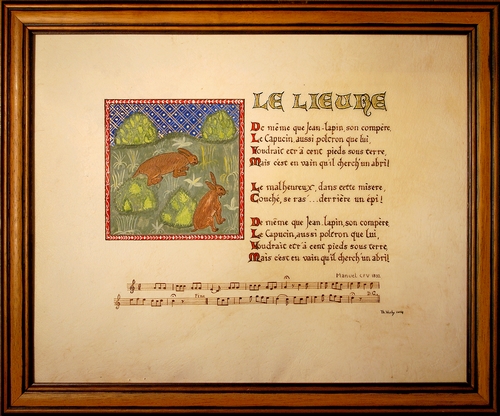 LE LIEVRE
De même que Jean-lapin, son compère,
Le Capucin, aussi poltron que lui,
Voudrait etr'à cent pieds sous terre,
Mais c'est en vain qu'il cherch'un abri!
Le malheureux, dans cette misère,
Couché, se ras'...derrière un épi!
De même que Jean-lapin, son compère
Le Capucin, aussi poltron que lui,
Voudrait etr'à cent pieds sous terre,
Mais c'est en vain qu'il cherch'un abri!
Fine
D.C.